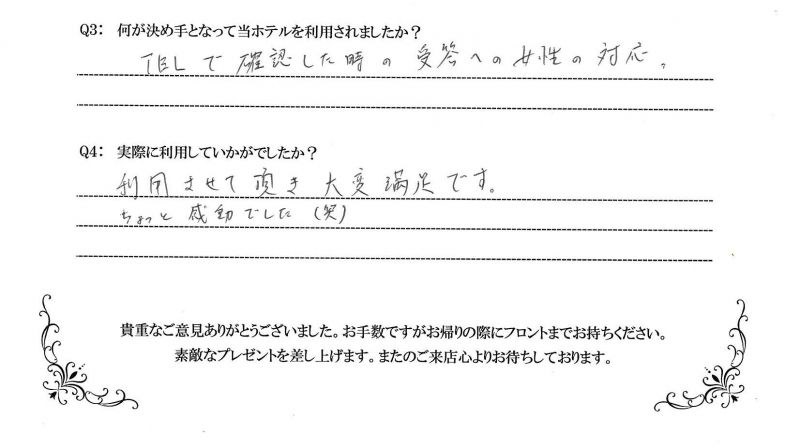 Q3: 何が決め手となって当ホテルを利用されましたか？
TELで確認した時の受答への女性の対応。
Q4: 実際に利用していかがでしたか？
利用させて頂き大変満足です。
ちょっと感動でした（笑）
貴重なご意見ありがとうございました。お手数ですがお帰りの際にフロントまでお持ちください。
素敵なプレゼントを差し上げます。またのご来店心よりお待ちしております。